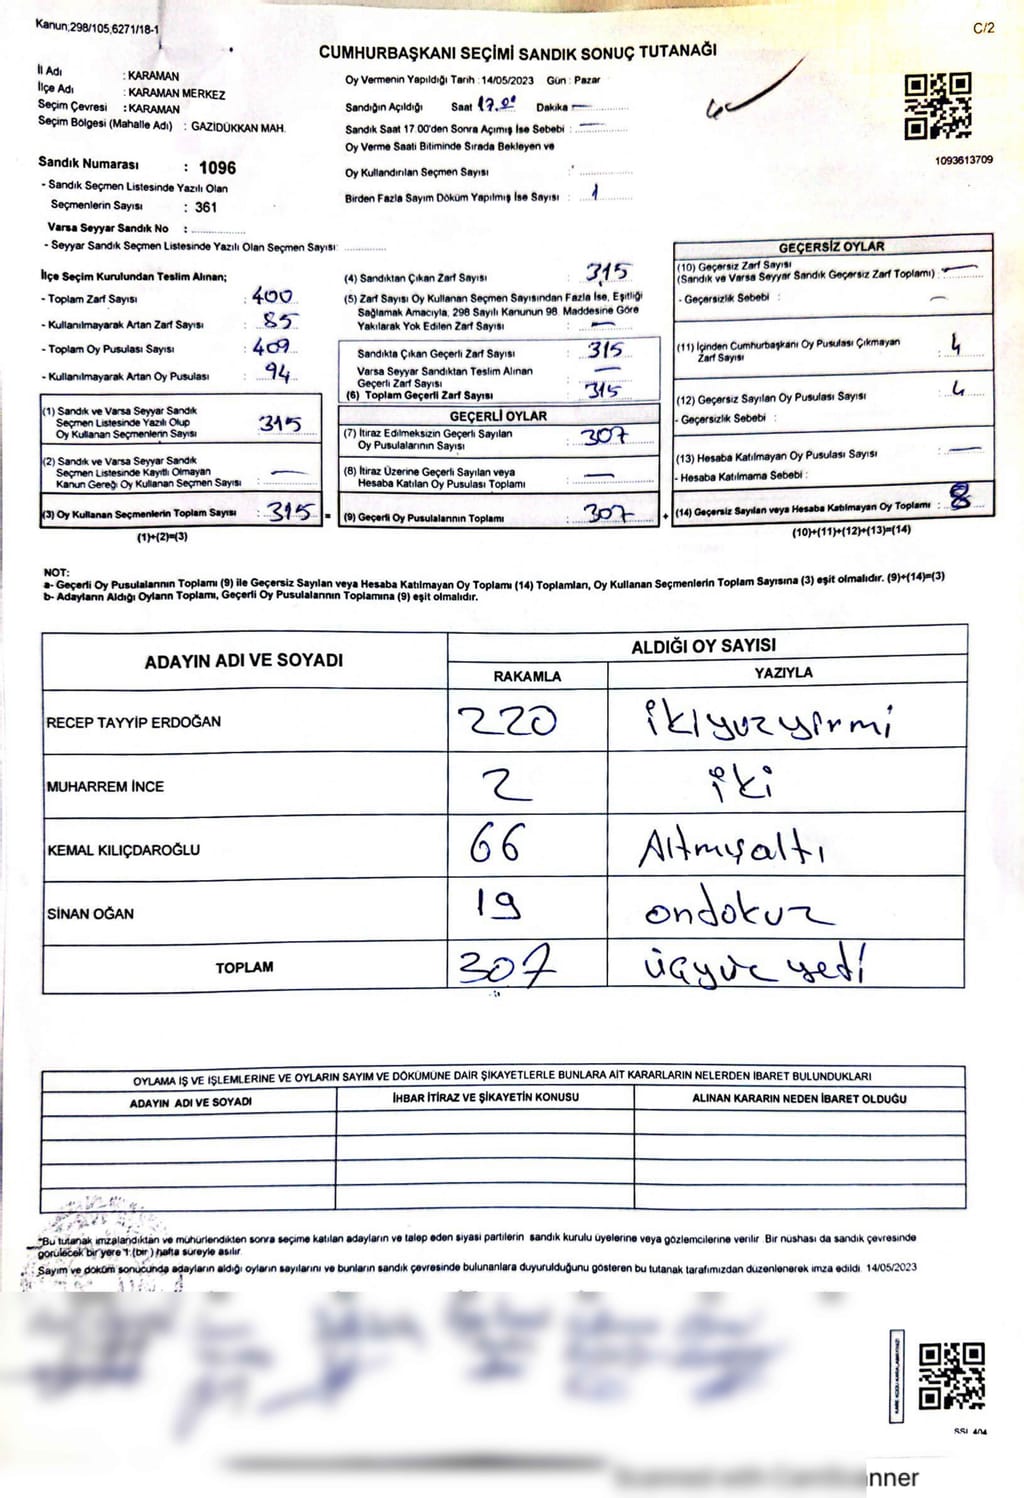 Kanun;298/105,6271/18-1
C/2
CUMHURBAŞKANI SEÇİMİ SANDIK SONUÇ TUTANAĞI
İl Adı : KARAMAN
İlçe Adı : KARAMAN MERKEZ
Seçim Çevresi : KARAMAN
Seçim Bölgesi (Mahalle Adı) : GAZİDÜKKAN MAH.
Sandık Numarası : 1096
- Sandık Seçmen Listesinde Yazılı Olan
Seçmenlerin Sayısı : 361
Varsa Seyyar Sandık No : ................
- Seyyar Sandık Seçmen Listesinde Yazılı Olan Seçmen Sayısı: ............
Oy Vermenin Yapıldığı Tarih : 14/05/2023 Gün : Pazar
Sandığın Açıldığı Saat 17.00 Dakika —
Sandık Saat 17.00'den Sonra Açımış İse Sebebi : —
Oy Verme Saati Bitiminde Sırada Bekleyen ve
Oy Kullandırılan Seçmen Sayısı :
Birden Fazla Sayım Döküm Yapılmış İse Sayısı : 1
1093613709
İlçe Seçim Kurulundan Teslim Alınan;
- Toplam Zarf Sayısı : 400
- Kullanılmayarak Artan Zarf Sayısı : 85
- Toplam Oy Pusulası Sayısı : 409
- Kullanılmayarak Artan Oy Pusulası : 94
(1) Sandık ve Varsa Seyyar Sandık
Seçmen Listesinde Yazılı Olup
Oy Kullanan Seçmenlerin Sayısı : 315
(2) Sandık ve Varsa Seyyar Sandık
Seçmen Listesinde Kayıtlı Olmayan
Kanun Gereği Oy Kullanan Seçmen Sayısı : —
(3) Oy Kullanan Seçmenlerin Toplam Sayısı : 315 =
(1)+(2)=(3)
(4) Sandıktan Çıkan Zarf Sayısı : 315
(5) Zarf Sayısı Oy Kullanan Seçmen Sayısından Fazla İse, Eşitliği
Sağlamak Amacıyla, 298 Sayılı Kanunun 98. Maddesine Göre
Yakılarak Yok Edilen Zarf Sayısı : —
Sandıkta Çıkan Geçerli Zarf Sayısı : 315
Varsa Seyyar Sandıktan Teslim Alınan
Geçerli Zarf Sayısı : —
(6) Toplam Geçerli Zarf Sayısı : 315
GEÇERLİ OYLAR
(7) İtiraz Edilmeksizin Geçerli Sayılan
Oy Pusulalarının Sayısı : 307
(8) İtiraz Üzerine Geçerli Sayılan veya
Hesaba Katılan Oy Pusulası Toplamı : —
(9) Geçerli Oy Pusulalarının Toplamı : 307 +
GEÇERSİZ OYLAR
(10) Geçersiz Zarf Sayısı
(Sandık ve Varsa Seyyar Sandık Geçersiz Zarf Toplamı) : —
- Geçersizlik Sebebi : —
(11) İçinden Cumhurbaşkanı Oy Pusulası Çıkmayan
Zarf Sayısı : 4
(12) Geçersiz Sayılan Oy Pusulası Sayısı : 4
- Geçersizlik Sebebi :
(13) Hesaba Katılmayan Oy Pusulası Sayısı : —
- Hesaba Katılmama Sebebi :
(14) Geçersiz Sayılan veya Hesaba Katılmayan Oy Toplamı : 8
(10)+(11)+(12)+(13)=(14)
NOT:
a- Geçerli Oy Pusulalarının Toplamı (9) ile Geçersiz Sayılan veya Hesaba Katılmayan Oy Toplamı (14) Toplamları, Oy Kullanan Seçmenlerin Toplam Sayısına (3) eşit olmalıdır. (9)+(14)=(3)
b- Adayların Aldığı Oyların Toplamı, Geçerli Oy Pusulalarının Toplamına (9) eşit olmalıdır.
ADAYIN ADI VE SOYADI ALDIĞI OY SAYISI
RAKAMLA YAZIYLA
RECEP TAYYİP ERDOĞAN 220 ikiyüzyirmi
MUHARREM İNCE 2 iki
KEMAL KILIÇDAROĞLU 66 Altmışaltı
SİNAN OĞAN 19 ondokuz
TOPLAM 307 üçyüz yedi
OYLAMA İŞ VE İŞLEMLERİNE VE OYLARIN SAYIM VE DÖKÜMÜNE DAİR ŞİKAYETLERLE BUNLARA AİT KARARLARIN NELERDEN İBARET BULUNDUKLARI
ADAYIN ADI VE SOYADI İHBAR İTİRAZ VE ŞİKAYETİN KONUSU ALINAN KARARIN NEDEN İBARET OLDUĞU
*Bu tutanak imzalandıktan ve mühürlendikten sonra seçime katılan adayların ve talep eden siyasi partilerin sandık kurulu üyelerine veya gözlemcilerine verilir. Bir nüshası da sandık çevresinde
görülecek bir yere 1 (bir) hafta süreyle asılır.
Sayım ve döküm sonucunda adayların aldığı oyların sayılarını ve bunların sandık çevresinde bulunanlara duyurulduğunu gösteren bu tutanak tarafımızdan düzenlenerek imza edildi. 14/05/2023
SSI 404
Scanned with CamScanner